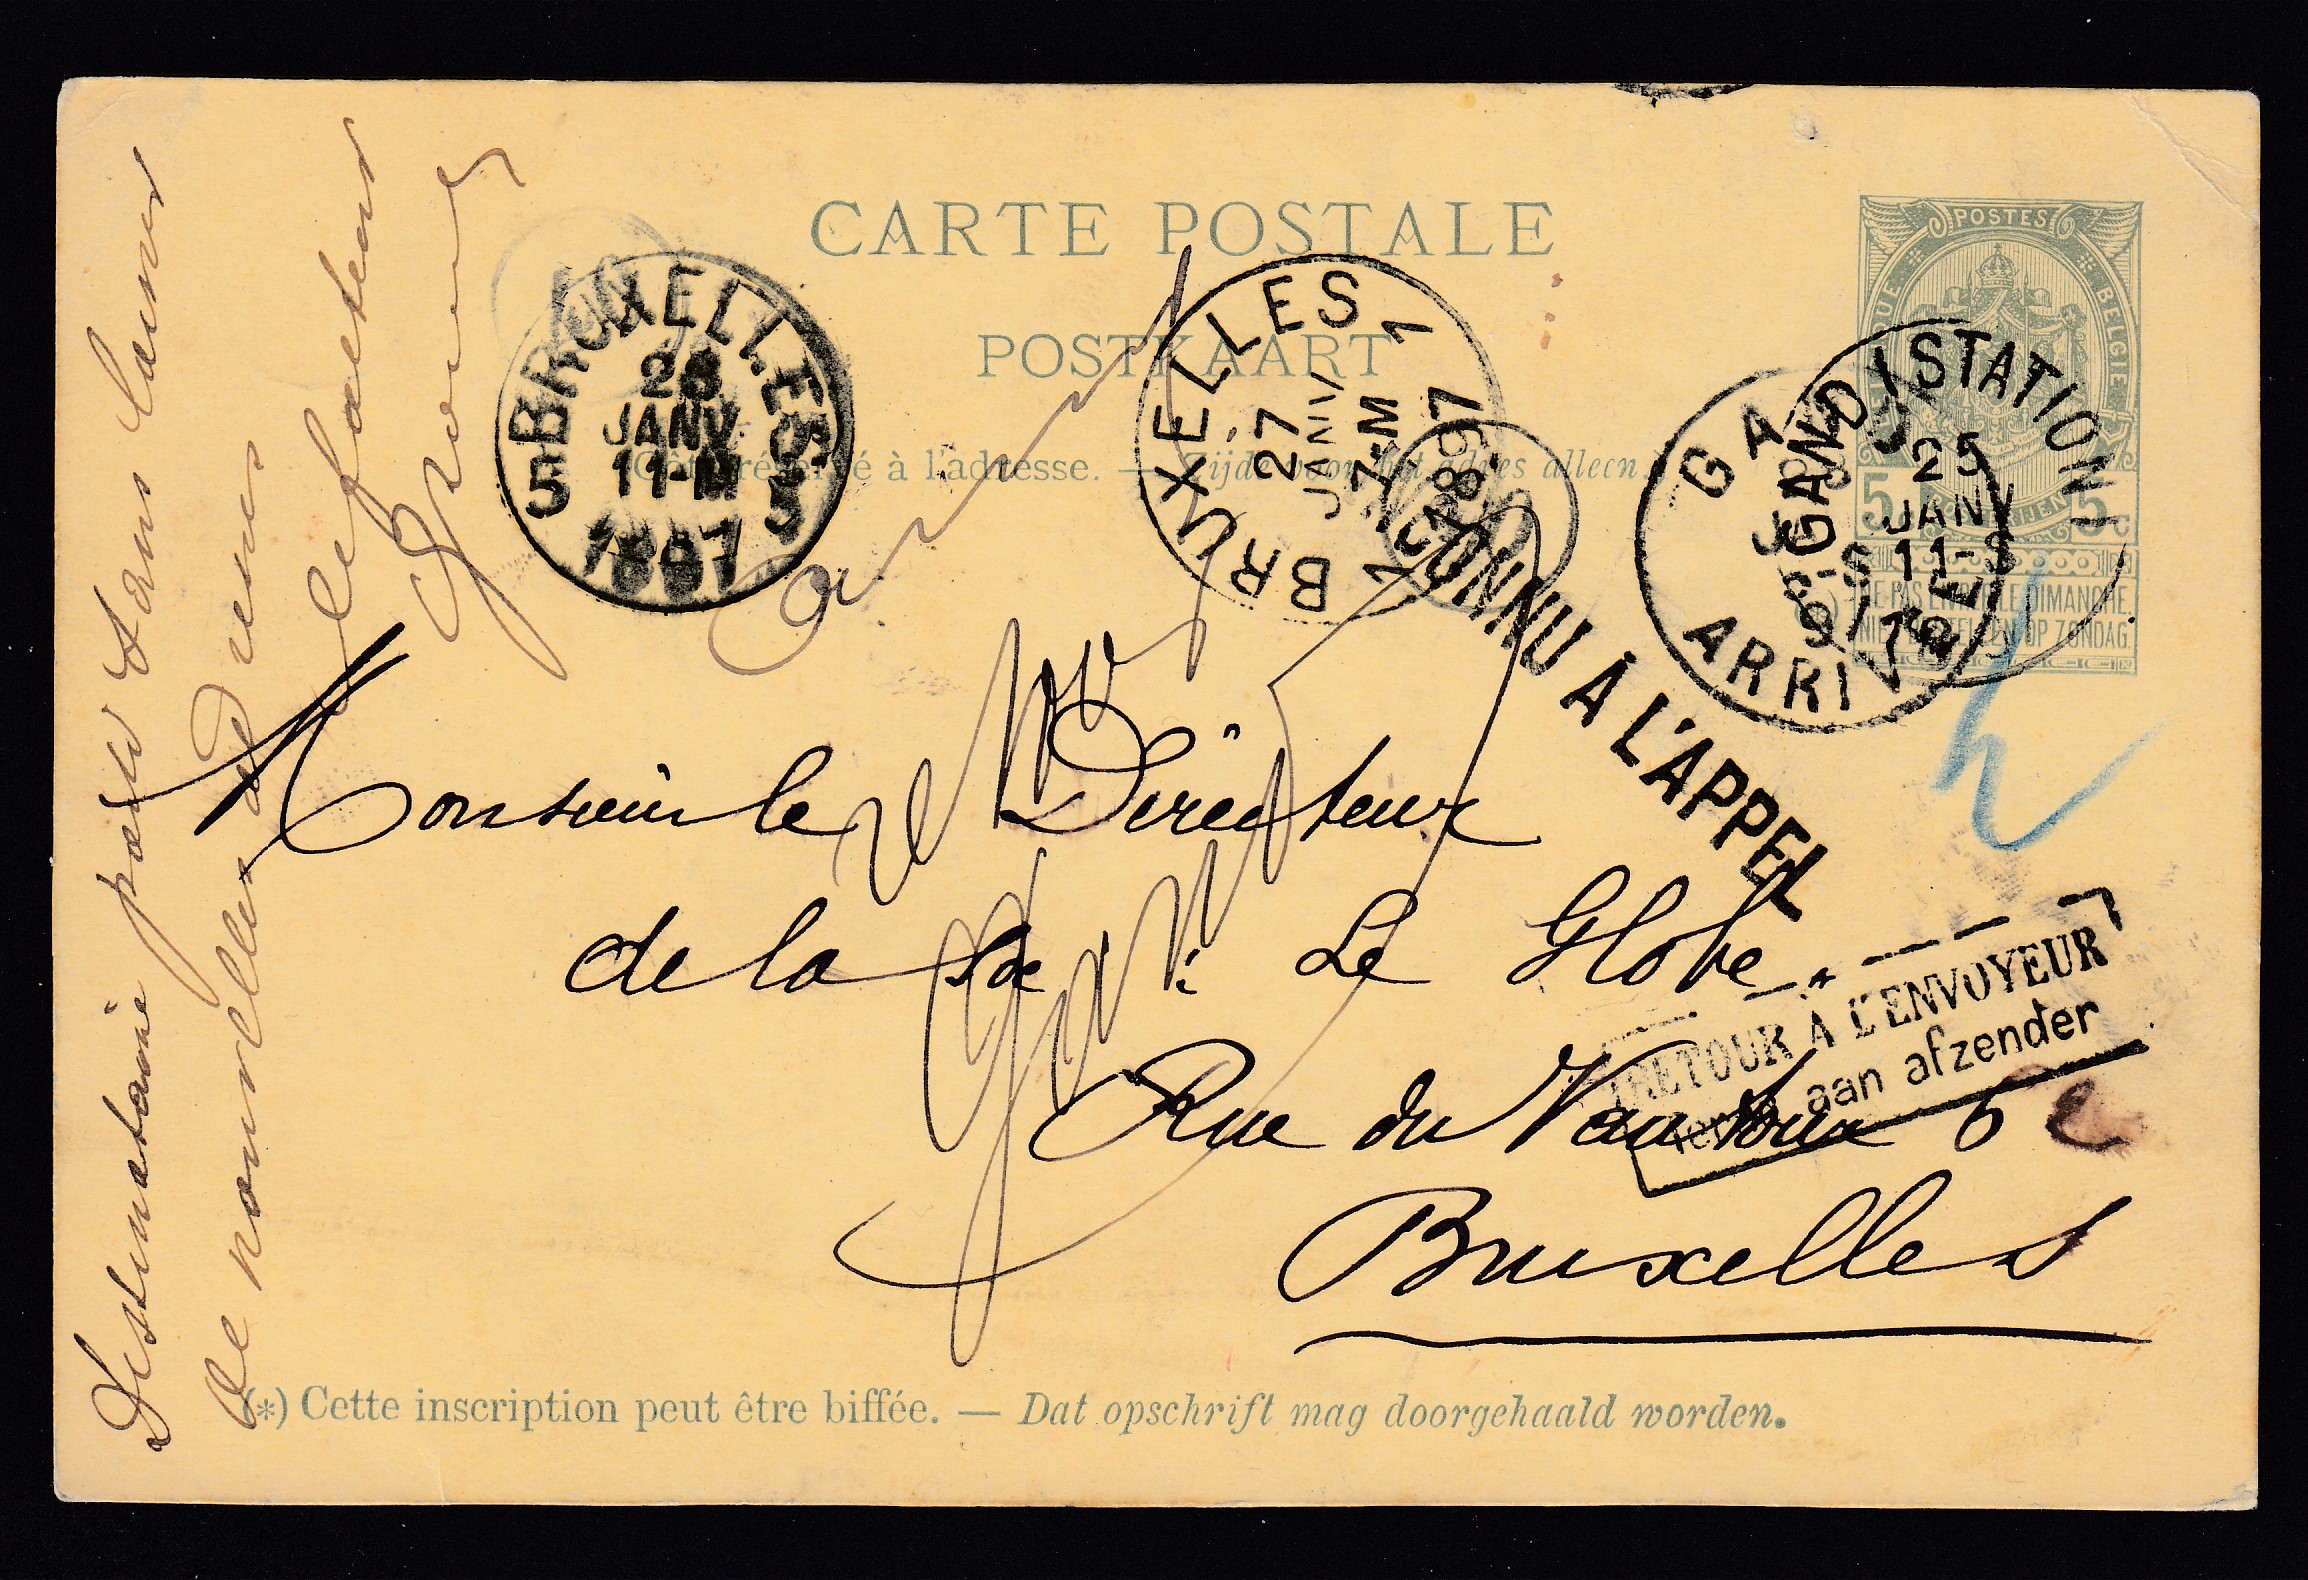 CARTE POSTALE
POSTKAART
Côté réservé à l'adresse. — Zijde voor het adres alleen.
POSTES
BELGIQUE BELGIE
POSTERIJEN
5 c 5 c
NE PAS LIVRER LE DIMANCHE.
NIET BESTELLEN OP ZONDAG.
BRUXELLES
28
JANV
11-M
1897
5 5
BRUXELLES 1
27
JANV
7-M
1897
GAND (STATION)
25
JANV
11-S
1897
GAND
ARRIVÉE
INCONNU À L'APPEL
RETOUR À L'ENVOYEUR
terug aan afzender
Monsieur le Directeur
de la Sté "Le Globe"
Rue du Vautour 6
Bruxelles
Destinataire parti sans laisser
de nouvelles
le facteur
inconnu
Gand
(*) Cette inscription peut être biffée. — Dat opschrift mag doorgehaald worden.